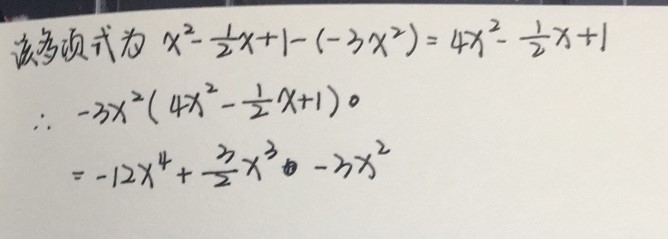 该多项式为 x²-½x+1-(-3x²)=4x²-½x+1
∴ -3x²(4x²-½x+1)
=-12x⁴+3/2x³-3x²